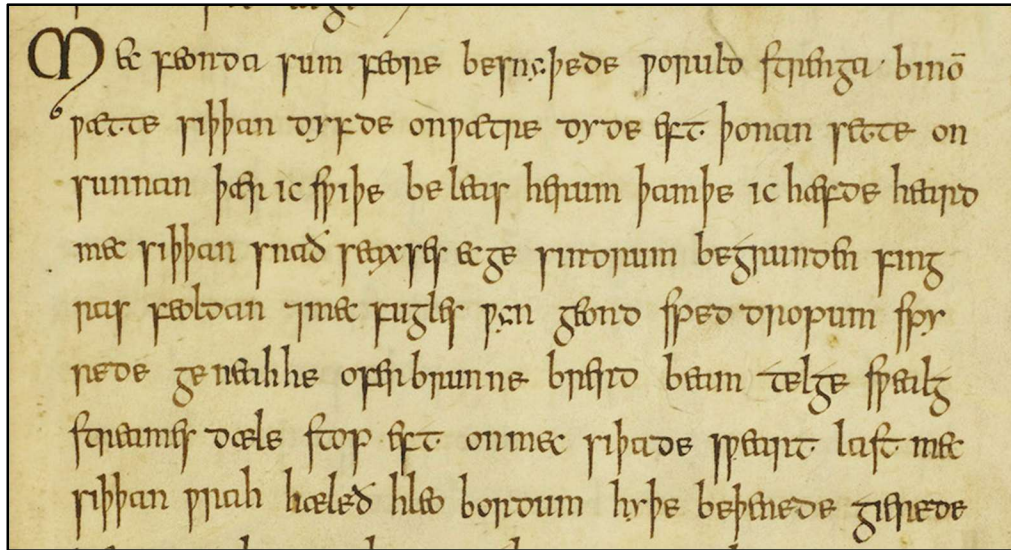 Mec feonda sum feore besnyþede ƿoruld strenga · binō
ƿætte siþþan dyfde onƿætre dyde eft þonan sette on
sunnan þær ic sƿiþe beleas herum þam þe ic hæfde heard
mec siþþan snað seaxses ecge sindrum begrunden fing
ras feoldan ⁊mec fugles ƿyn geond sped dropum spy
rede geneahhe ofer brunne brerd beam telge sƿealg
streames dæle stop eft onmec siþade sƿeart last mec
siþþan ƿrah hæleð hleo bordum hyþe beþenede gierede